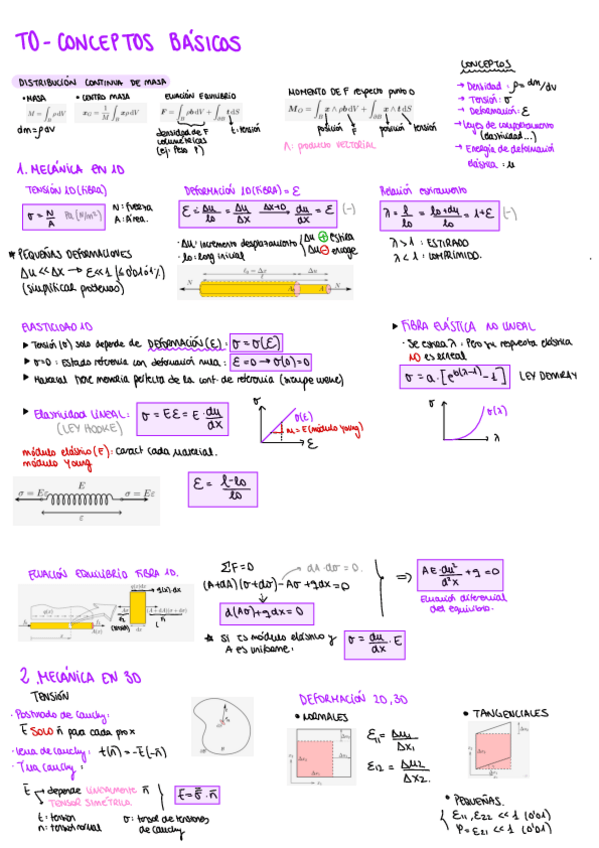 T0 - CONCEPTOS BÁSICOS
DISTRIBUCIÓN CONTINUA DE MASA
• MASA
M = ∫_B ρ dV
dm = ρ dV
• CENTRO MASA
x_G = 1/M ∫_B xρ dV
ECUACIÓN EQUILIBRIO
F = ∫_B ρb dV + ∫_∂B t dS
densidad de F
volumétricas
(ej: Peso P)
t: tensión
MOMENTO DE F respecto punto O
M_O = ∫_B x ∧ ρb dV + ∫_∂B x ∧ t dS
posición F posición tensión
Λ: producto VECTORIAL
CONCEPTOS
→ Densidad: ρ = dm/dV
→ Tensión: σ
→ Deformación: ε
→ Leyes de comportamiento
(elasticidad...)
→ Energía de deformación
elástica: u
1. MECÁNICA EN 1D
TENSIÓN 1D (FIBRA)
σ = N/A Pa (N/m²)
N: fuerza
A: Área.
DEFORMACIÓN 1D (FIBRA) = ε
ε = Δu/l0 = Δu/Δx Δx→0 du/dx = ε (-)
· Δu: incremento desplazamiento
· l0: long inicial
Δu ⊕ estira
Δu ⊖ encoge
Relación estiramiento
λ = l/l0 = l0+du/l0 = 1+ε (-)
λ > 1 : ESTIRADO
λ < 1 : COMPRIMIDO.
* PEQUEÑAS DEFORMACIONES
Δu << Δx → ε << 1
(simplificar problemas)
ℓ0 = Δx Δu
N A0 A N
ELASTICIDAD 1D
▸ Tensión (σ) solo depende de DEFORMACIÓN (ε): σ = σ(ε)
▸ σ=0: Estado referencia con deformación nula: ε=0 → σ(0)=0
▸ Material tiene memoria perfecta de la conf. de referencia (siempre vuelve)
▸ Elasticidad LINEAL: σ = Eε = E · du/dx
(LEY HOOKE)
σ
σ(ε)
m = E (módulo young)
ε
módulo elástico (E): caract cada material.
módulo Young
▸ FIBRA ELÁSTICA NO LINEAL
· Se estira λ. Pero su respuesta elástica
NO es lineal
σ = a · [e^b(λ-1) - 1] LEY DEMIRAY
σ
σ(λ)
λ
σ = Eε E σ = Eε
ε
ε = l-l0/l0
ECUACIÓN EQUILIBRIO FIBRA 1D.
ΣF=0 dA·dσ = 0.
(A+dA)(σ+dσ) - Aσ + q dx = 0
d(Aσ) + q dx = 0
* Si es módulo elástico y
A es uniforme:
σ = du/dx · E
⇒ AE · du²/d²x + q = 0
Ecuación diferencial
del equilibrio.
2. MECÁNICA EN 3D
TENSIÓN
· Postulado de Cauchy:
t SOLO n̄ para cada pto x
· Lema de Cauchy: t(n̄) = -t(-n̄)
· Tma Cauchy:
t → depende LINEALMENTE n̄
TENSOR SIMÉTRICA
t̄ = σ̄ · n̄
t: tensión
n: normal
σ: tensor de tensiones
de Cauchy
DEFORMACIÓN 2D, 3D
• NORMALES
ε11 = Δu1/Δx1
ε12 = Δu2/Δx2.
• TANGENCIALES
• PEQUEÑAS.
ε11, ε22 << 1 (0'01)
γ = ε21 << 1 (0'01)